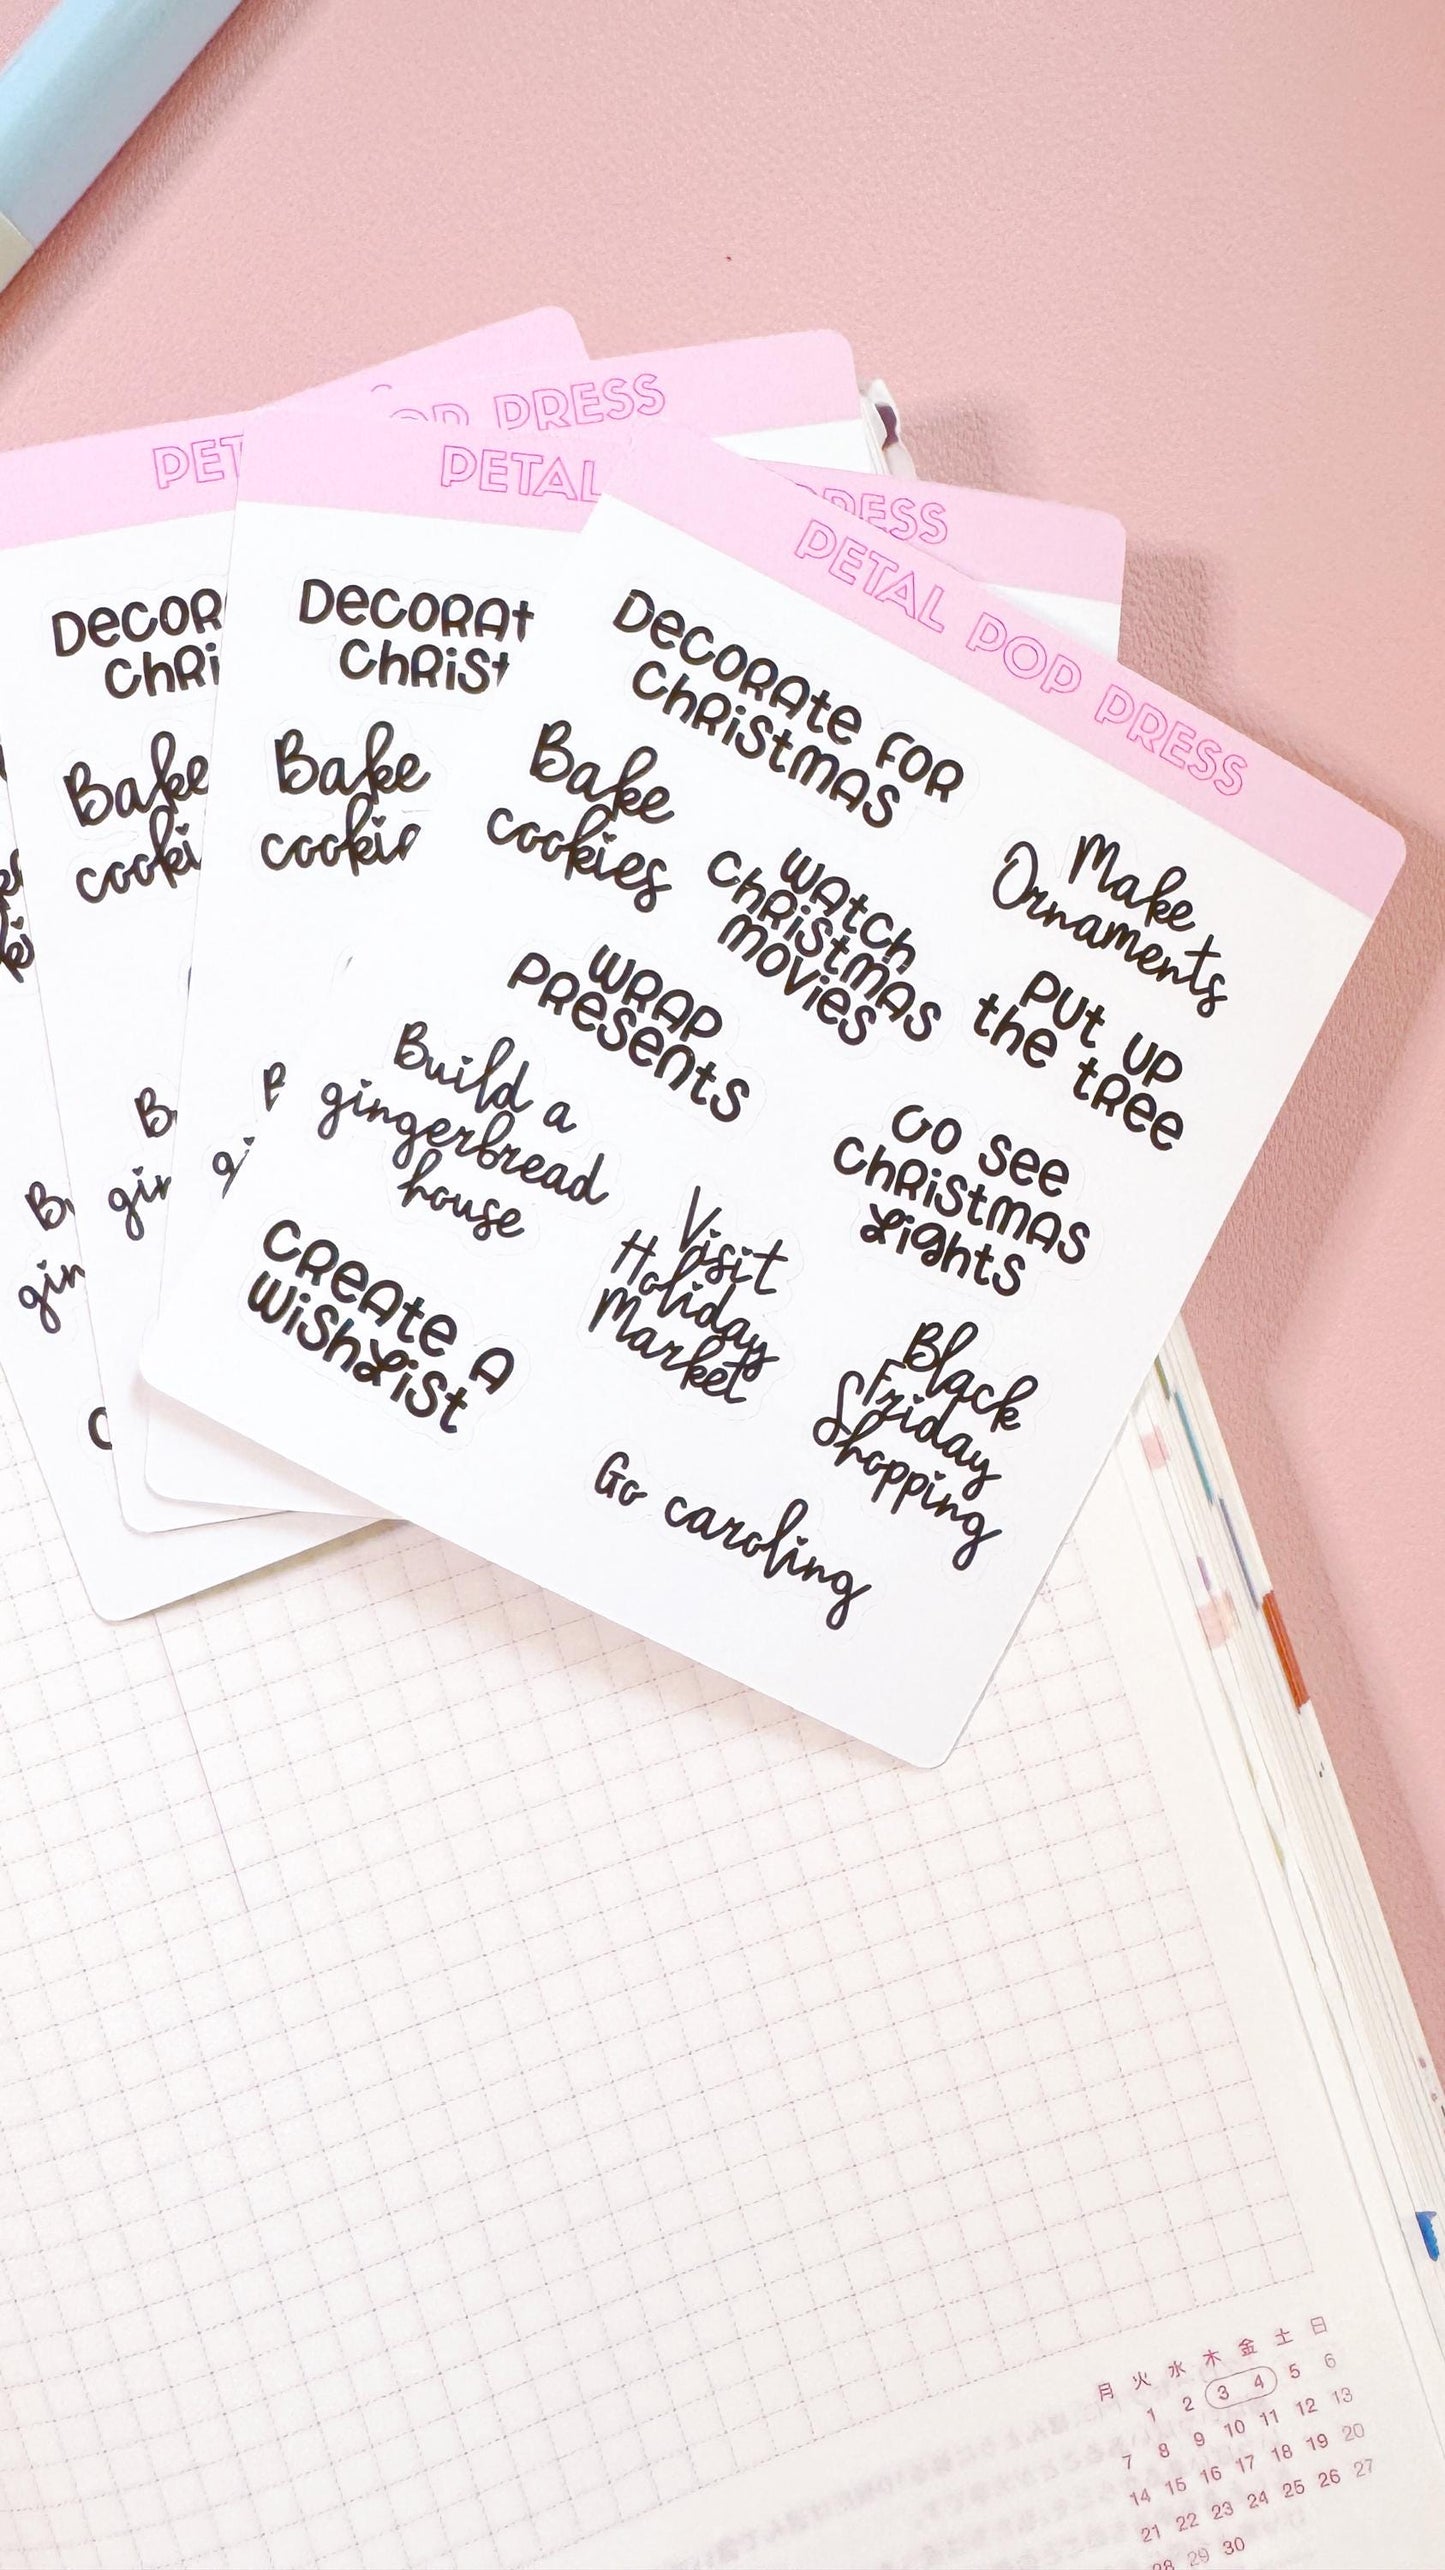 PRESS
PET
PETAL
PRESS
PETAL POP PRESS
Decorate for
Christmas
Bake
cookies
Watch
Christmas
movies
Make
Ornaments
Wrap
presents
Put up
the tree
Build a
gingerbread
house
Go see
Christmas
Lights
Create a
WishList
Visit
Holiday
Market
Black
Friday
Shopping
Go caroling
Decorat
Christ
Bake
cooki
Decor
Chri
Bake
cooki
月 火 水 木 金 土 日
1 2 3 4 5 6
7 8 9 10 11 12 13
14 15 16 17 18 19 20
21 22 23 24 25 26 27
28 29 30